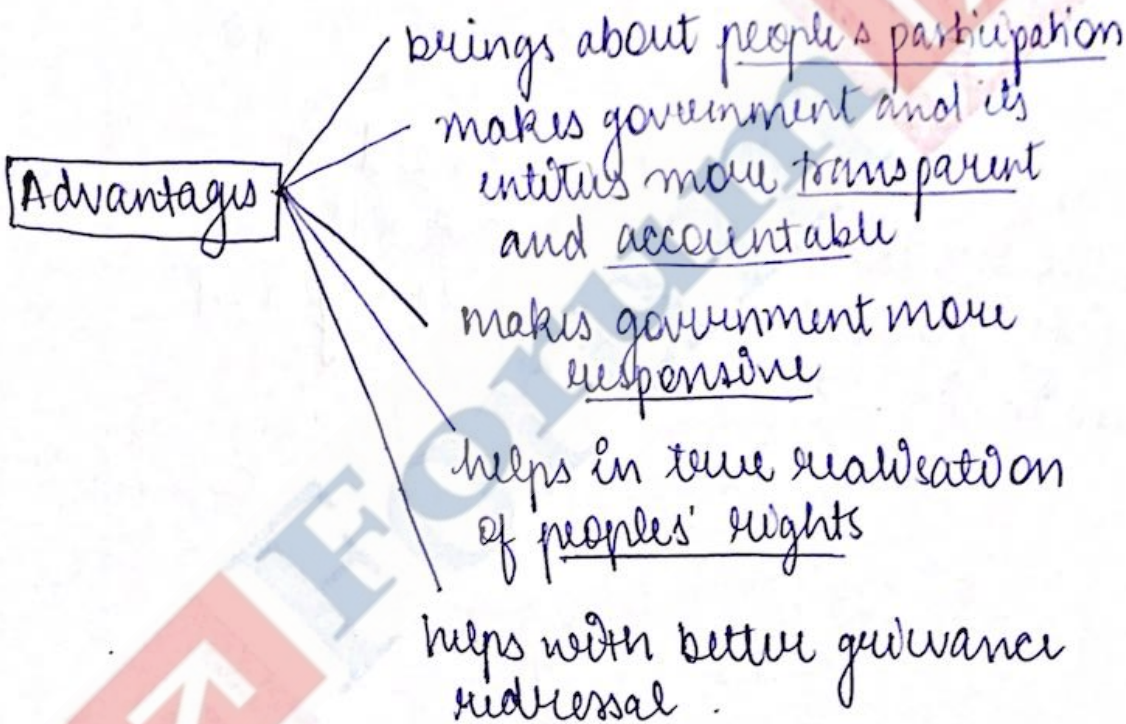 brings about people's participation
makes government and its
entities more transparent
and accountable
Advantages
makes government more
responsive
helps in true realisation
of peoples' rights
helps with better grievance
redressal.
Forum